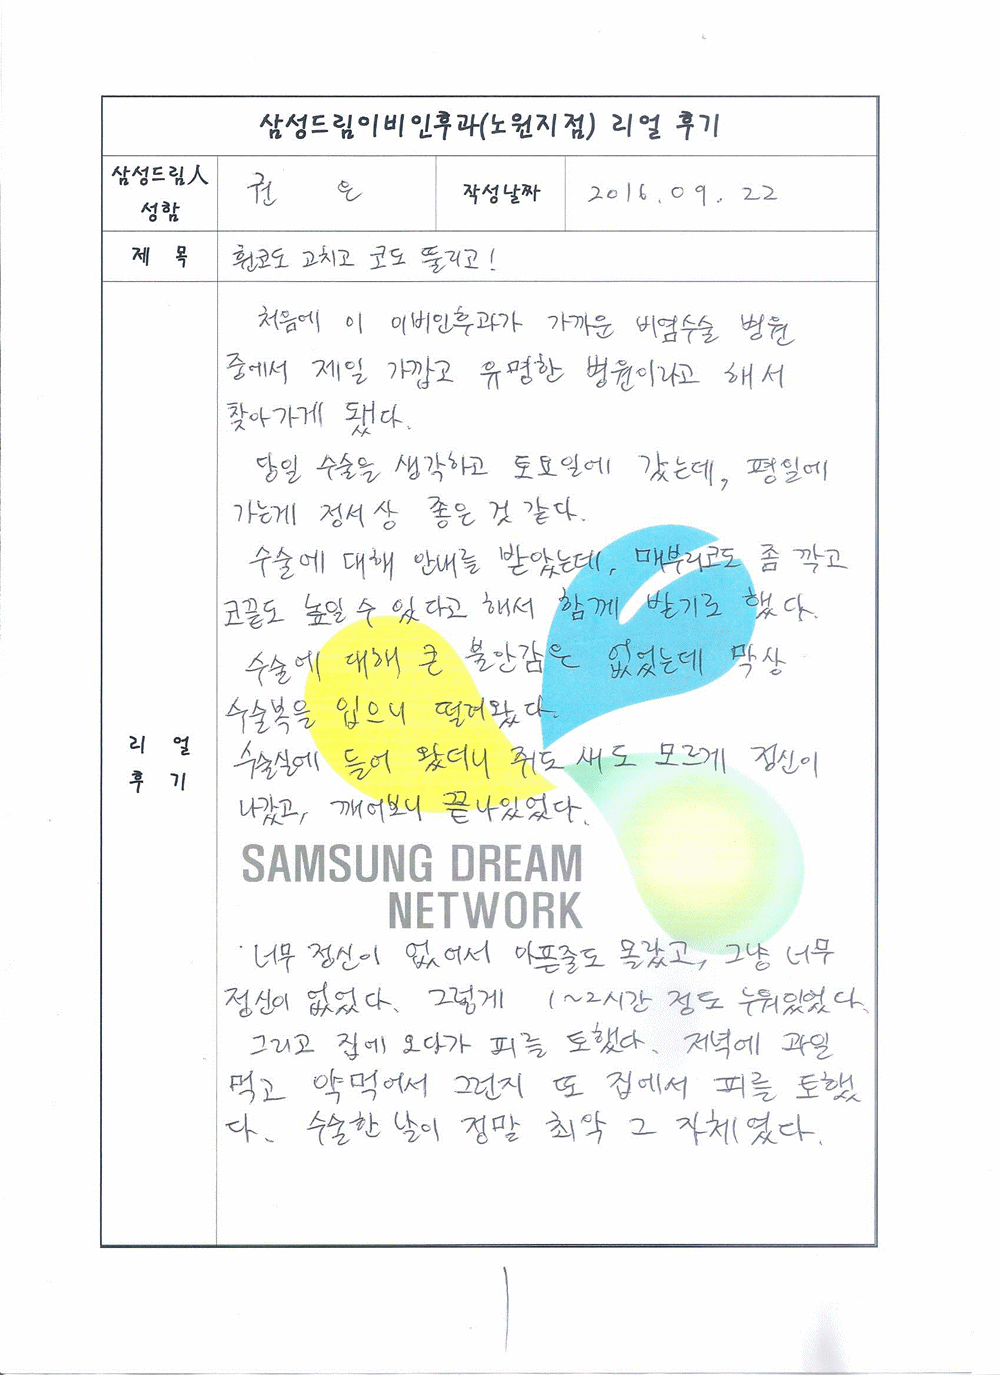 삼성드림이비인후과(노원지점) 리얼 후기
삼성드림人
성함
권 은
작성날짜
2016.09.22
제 목
휜코도 고치고 코도 뚫리고!
처음에 이 이비인후과가 가까운 비염수술 병원
중에서 제일 가깝고 유명한 병원이라고 해서
찾아가게 됐다.
당일 수술을 생각하고 토요일에 갔는데, 평일에
가는게 정서상 좋은 것 같다.
수술에 대해 안내를 받았는데, 매부리코도 좀 깎고
코끝도 높일 수 있다고 해서 함께 받기로 했다.
수술에 대해 큰 불안감은 없었는데 막상
수술복을 입으니 떨려왔다.
수술실에 들어 왔더니 쥐도 새도 모르게 정신이
나갔고, 깨어보니 끝나있었다.
리 얼
후 기
SAMSUNG DREAM
NETWORK
너무 정신이 없어서 아픈줄도 몰랐고, 그냥 너무
정신이 없었다. 그렇게 1~2시간 정도 누워있었다.
그리고 집에 오다가 피를 토했다. 저녁에 과일
먹고 약먹어서 그런지 또 집에서 피를 토했
다. 수술한 날이 정말 최악 그 자체였다.